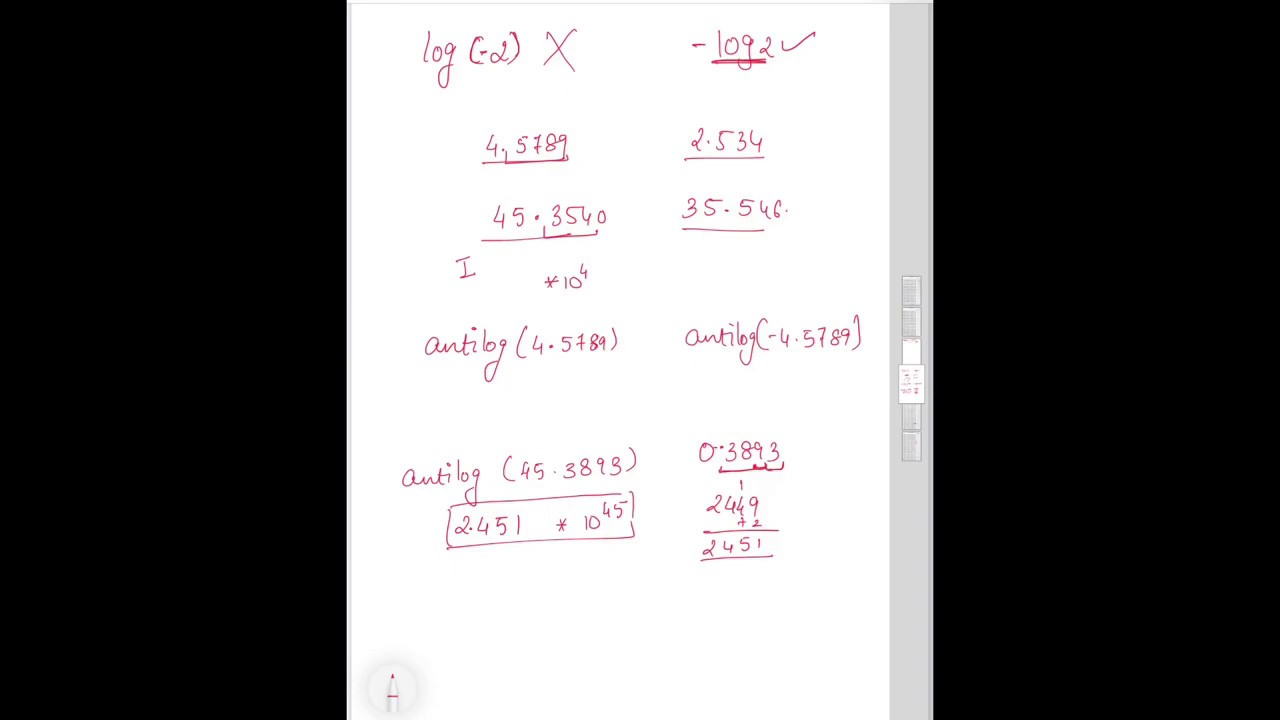 log (-2) X - log 2 ✓
4.5789 2.534
45.3540 35.546.
I
*10⁴
antilog (4.5789) antilog(-4.5789)
0.3893
antilog (45.3893)
1
2449
2.451 * 10⁴⁵
+2
2451